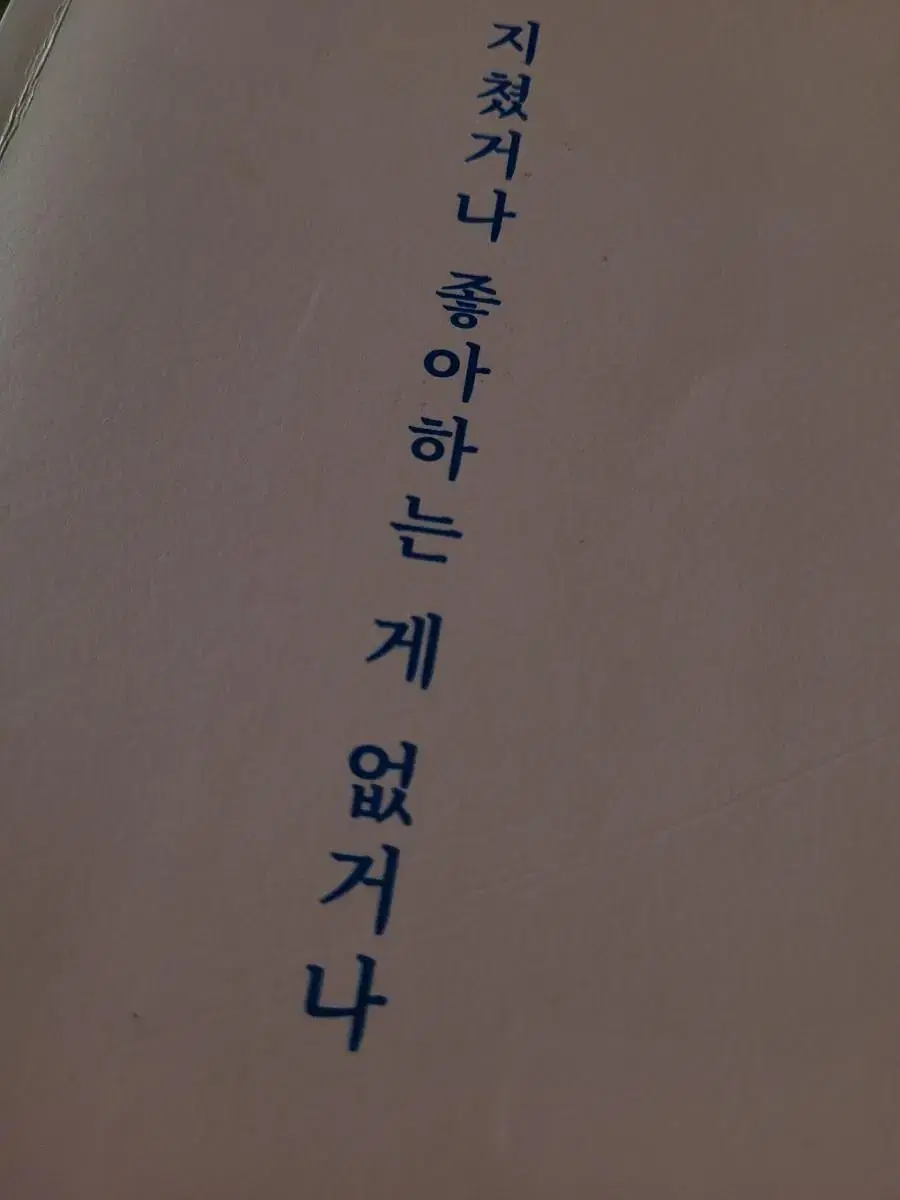 지쳤거나 좋아하는 게 없거나